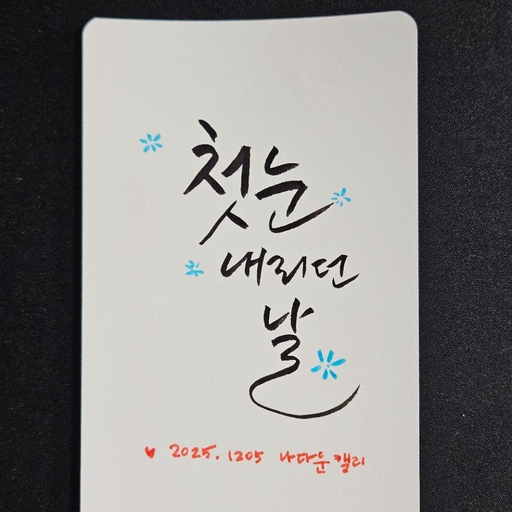 첫눈
내리던
날
♥ 2025. 1205 나다운 캘리